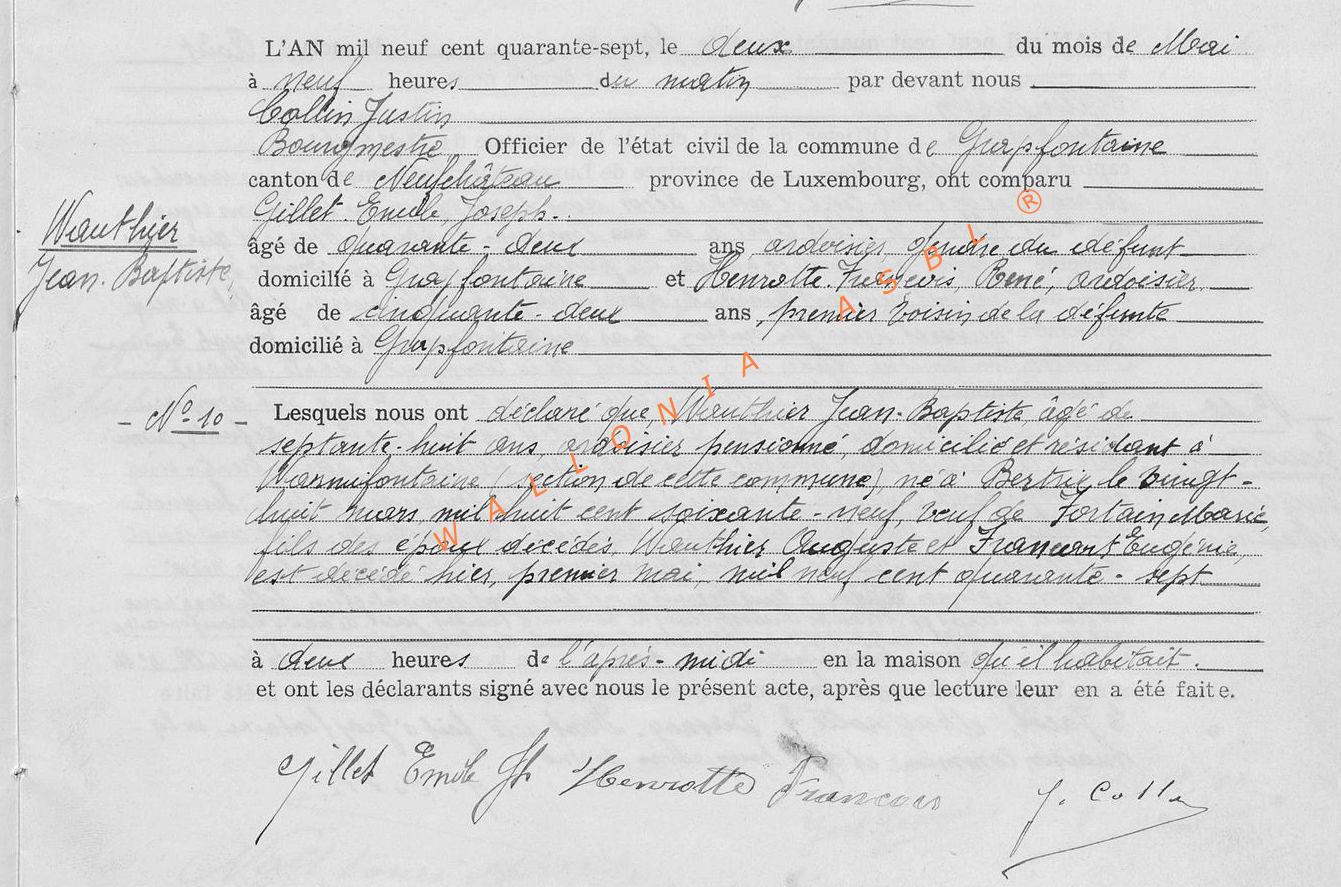 L'AN mil neuf cent quarante-sept, le deux du mois de Mai
à neuf heures du matin par devant nous
Collin Justin
Bourgmestre Officier de l'état civil de la commune de Grapfontaine
canton de Neufchâteau province de Luxembourg, ont comparu
Gillet Emile, Joseph.
âgé de quarante-deux ans, ardoisier, gendre du défunt
Wauthier
Jean-Baptiste
domicilié à Grapfontaine et Henrotte François, René, ardoisier,
âgé de cinquante-deux ans, premier voisin de la défunte
domicilié à Grapfontaine
- No 10 -
Lesquels nous ont déclaré que, Wauthier Jean-Baptiste, âgé de
septante-huit ans, ardoisier pensionné, domicilié et résidant à
Warmifontaine (section de cette commune), né à Bertrix le vingt-
huit mars mil huit cent soixante-neuf, veuf de Fortain Marie,
fils des époux décédés Wauthier Auguste et Eugénie,
est décédé hier, premier mai, mil neuf cent quarante-sept
à deux heures de l'après-midi en la maison qu'il habitait.
et ont les déclarants signé avec nous le présent acte, après que lecture leur en a été faite.
Gillet Emile Jh Henrotte François J. Collin
WALLONIA ASBL ®